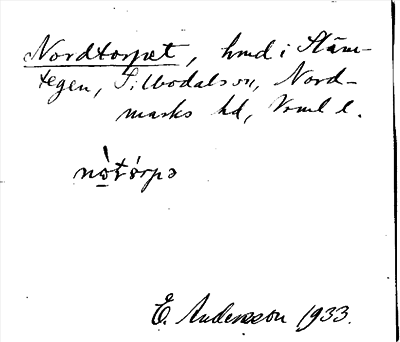 Nordtorpet, hmd i Stäm-
tegen, Silbodals sn, Nord-
marks hd, Vrml l.
nòtórpə
E. Andersson 1933.